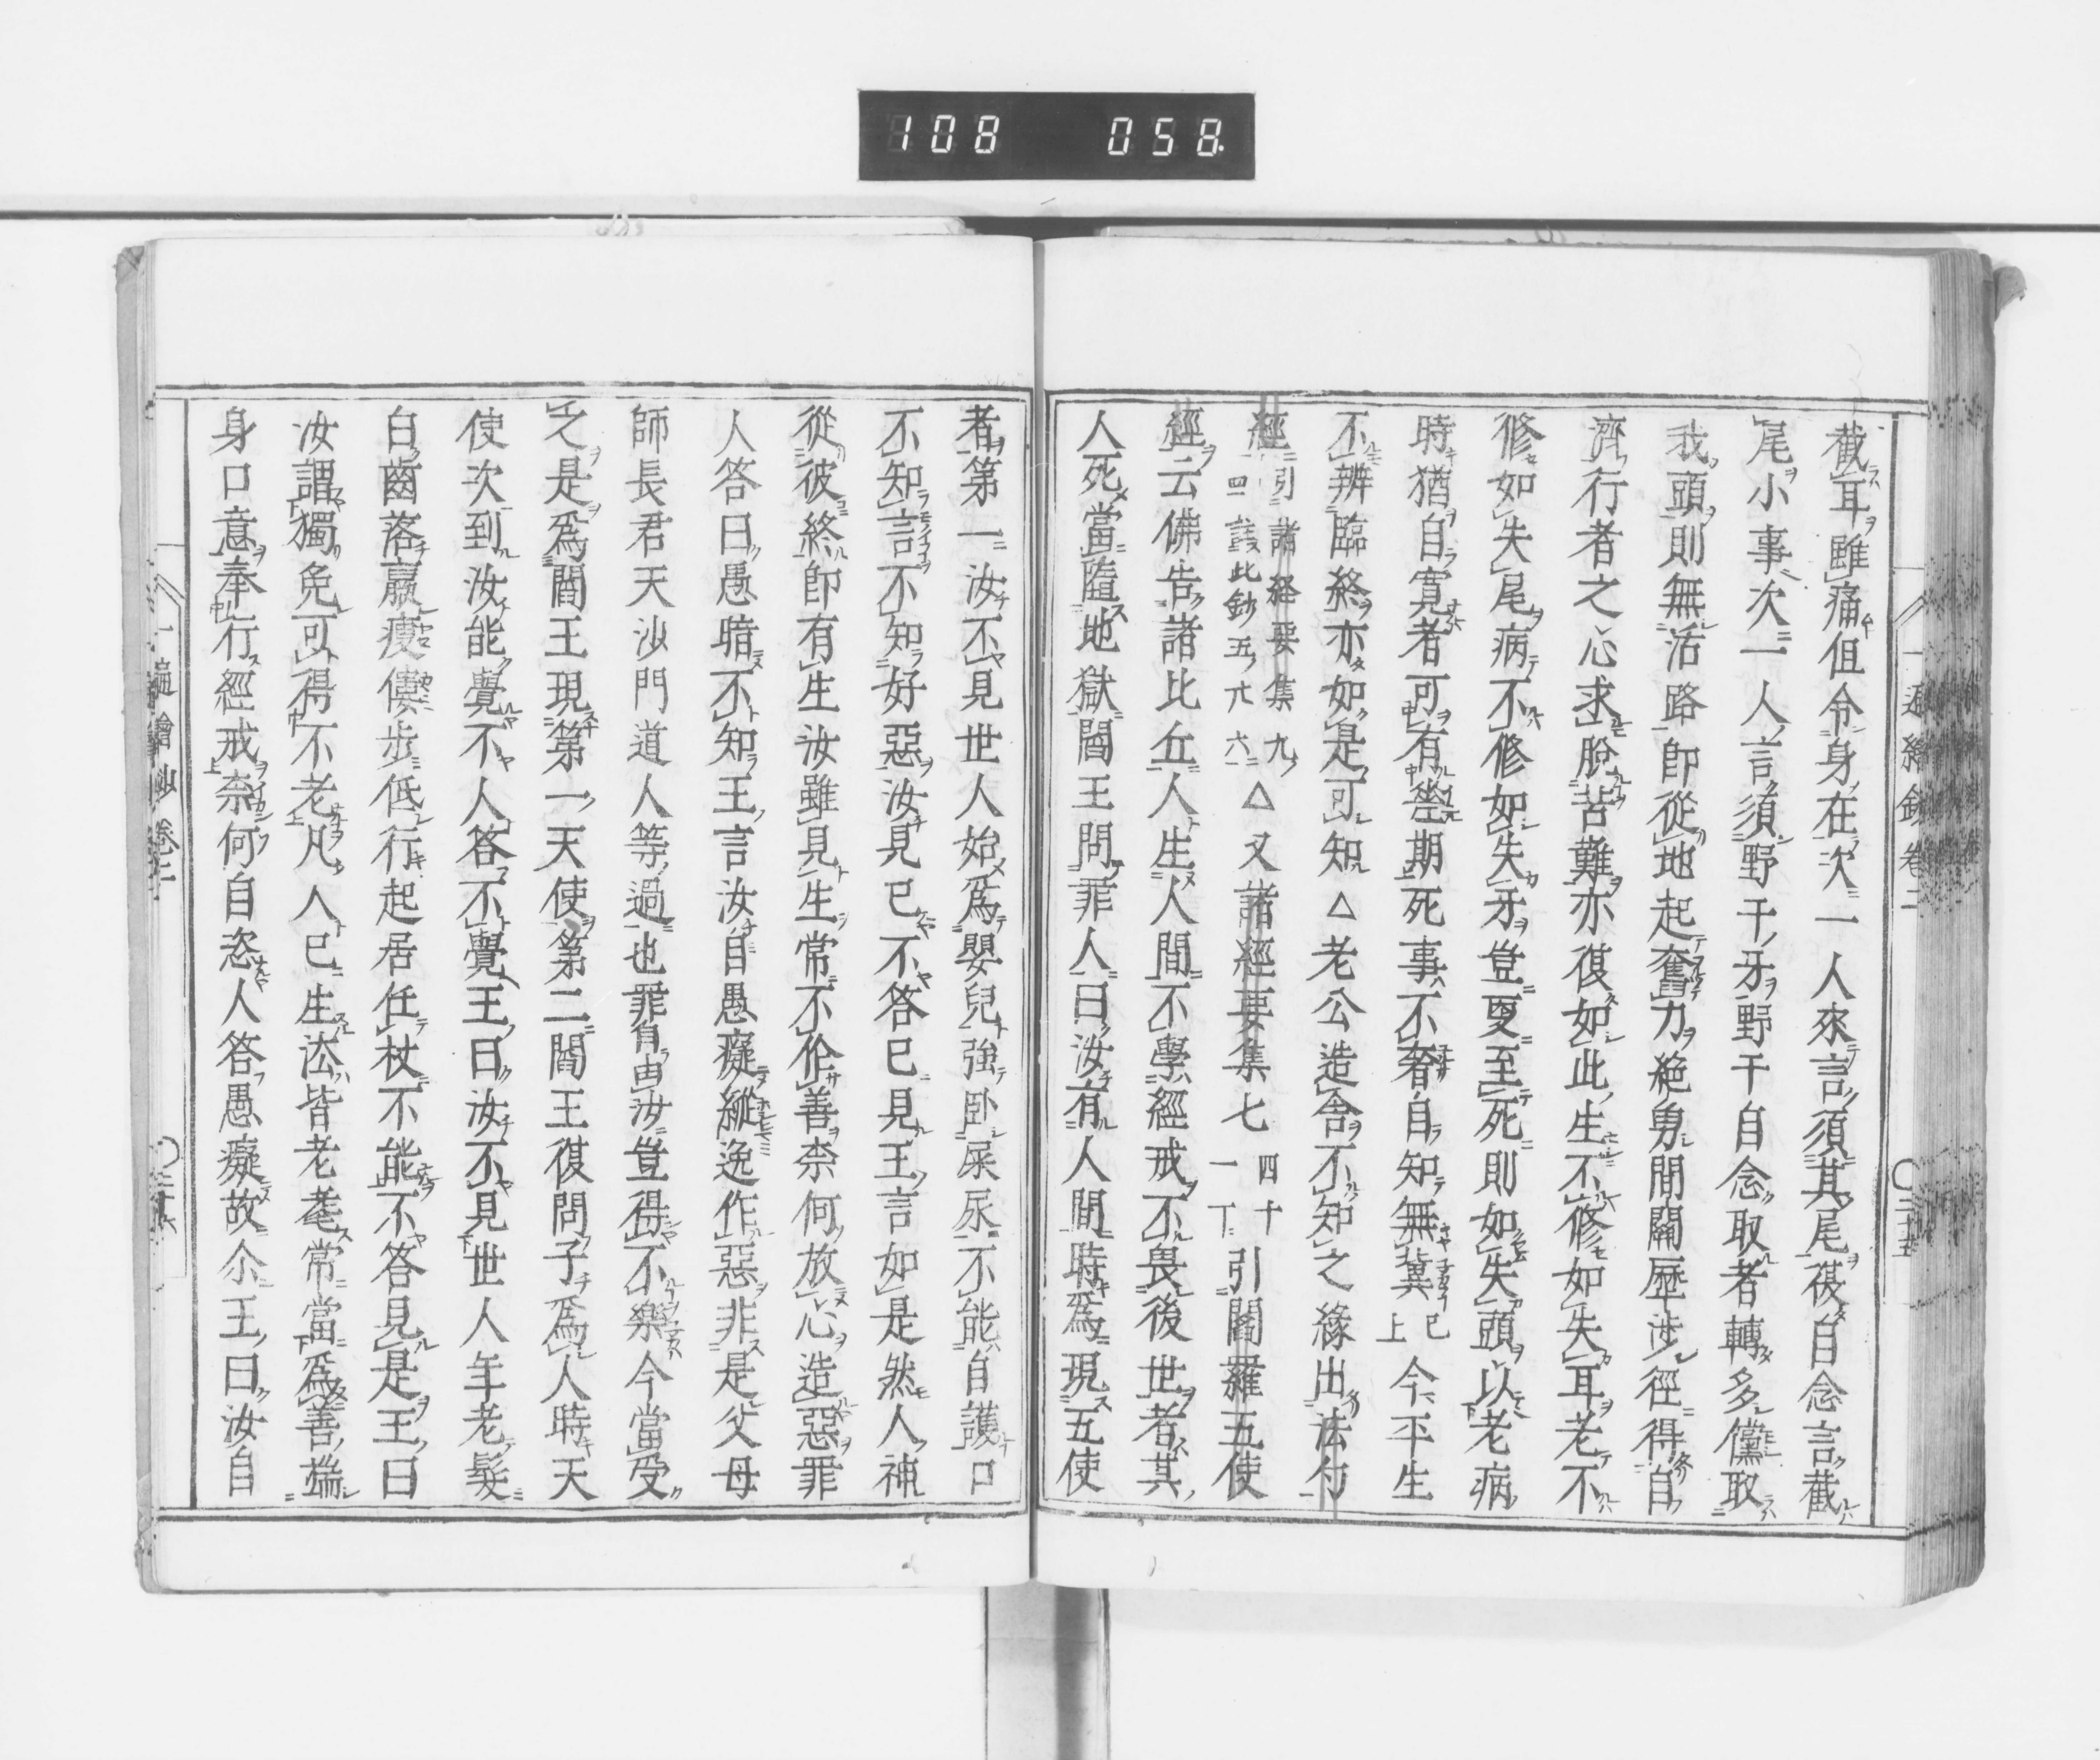 108 058.
截耳雖痛但令身在次一人來言須其尾復自念言截
尾小事次一人言須野干牙野干自念取者轉多儻取
我頭則無活路即從地起奮力絶勇間關歷渉徑得自
濟行者之心求脫苦難亦復如此生不修如失耳老不
修如失尾病不修如失牙豈更至死則如失頭以老病
時猶自寛者可有叄期死事不奢自知無冀已上今平生
不辨臨終亦如是可知△老公造舎不知之緣出法句
經引諸経要集九四一談此鈔五六六△又諸經要集七四十一丁引閻羅五使
經云佛告諸比丘人生人間不學經戒不畏後世者其
人死當墮地獄閻王問罪人曰汝有人間時爲現五使
一遍繪鈔卷二
者第一汝不見世人始爲嬰兒強卧屎尿不能自護口
不知言不知好惡汝見已不答已見王言如是然人神
從彼終即有生汝雖見生常不作善柰何放心造惡罪
人答曰愚暗不知王言汝自愚癡縱逸作惡非是父母
師長君天沙門道人等過也罪自由汝豈得不樂今當受
之是爲閻王現第一天使第二閻王復問子爲人時天
使次到汝能覺不人答不覺王曰汝不見世人年老髮
白齒落羸瘦僂步低行起居任杖不能不答見是王曰
汝謂獨免可得不老凡人已生法皆老耄常當爲善端
身口意奉行經戒柰何自恣人答愚癡故尒王曰汝自
一遍繪鈔卷二